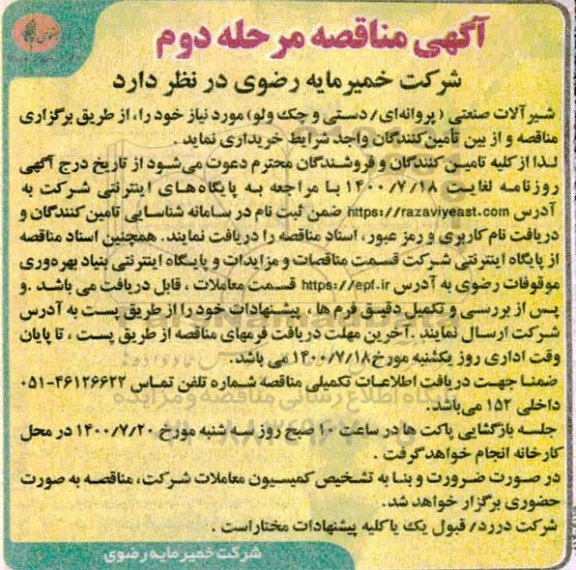 آگهی مناقصه مرحله دوم
شرکت خمیرمایه رضوی در نظر دارد
شیرآلات صنعتی (پروانه‌ای/دستی و چک ولو) مورد نیاز خود را، از طریق برگزاری
مناقصه و از بین تأمین‌کنندگان واجد شرایط خریداری نماید.
لذا از کلیه تامین کنندگان و فروشندگان محترم دعوت می‌شود از تاریخ درج آگهی
روزنامه لغایت ۱۴۰۰/۷/۱۸ با مراجعه به پایگاه‌های اینترنتی شرکت به
آدرس https://razaviyeast.com ضمن ثبت نام در سامانه شناسایی تامین کنندگان و
دریافت نام کاربری و رمز عبور، اسناد مناقصه را دریافت نمایند. همچنین اسناد مناقصه
از پایگاه اینترنتی شرکت قسمت مناقصات و مزایدات و پایگاه اینترنتی بنیاد بهره‌وری
موقوفات رضوی به آدرس https://epf.ir قسمت معاملات ، قابل دریافت می باشد .و
پس از بررسی و تکمیل دقیق فرم ها ، پیشنهادات خود را از طریق پست به آدرس
شرکت ارسال نمایند .آخرین مهلت دریافت فرمهای مناقصه از طریق پست ، تا پایان
وقت اداری روز یکشنبه مورخ ۱۴۰۰/۷/۱۸ می باشد.
ضمنا جهت دریافت اطلاعات تکمیلی مناقصه شماره تلفن تماس ۴۶۱۲۶۶۲۲-۰۵۱
داخلی ۱۵۲ می‌باشد.
جلسه بازگشایی پاکت ها در ساعت ۱۰ صبح روز سه شنبه مورخ ۱۴۰۰/۷/۲۰ در محل
کارخانه انجام خواهد گرفت .
در صورت ضرورت و بنا به تشخیص کمیسیون معاملات شرکت، مناقصه به صورت
حضوری برگزار خواهد شد.
شرکت دررد/ قبول یک یا کلیه پیشنهادات مختار است .
شرکت خمیرمایه رضوی